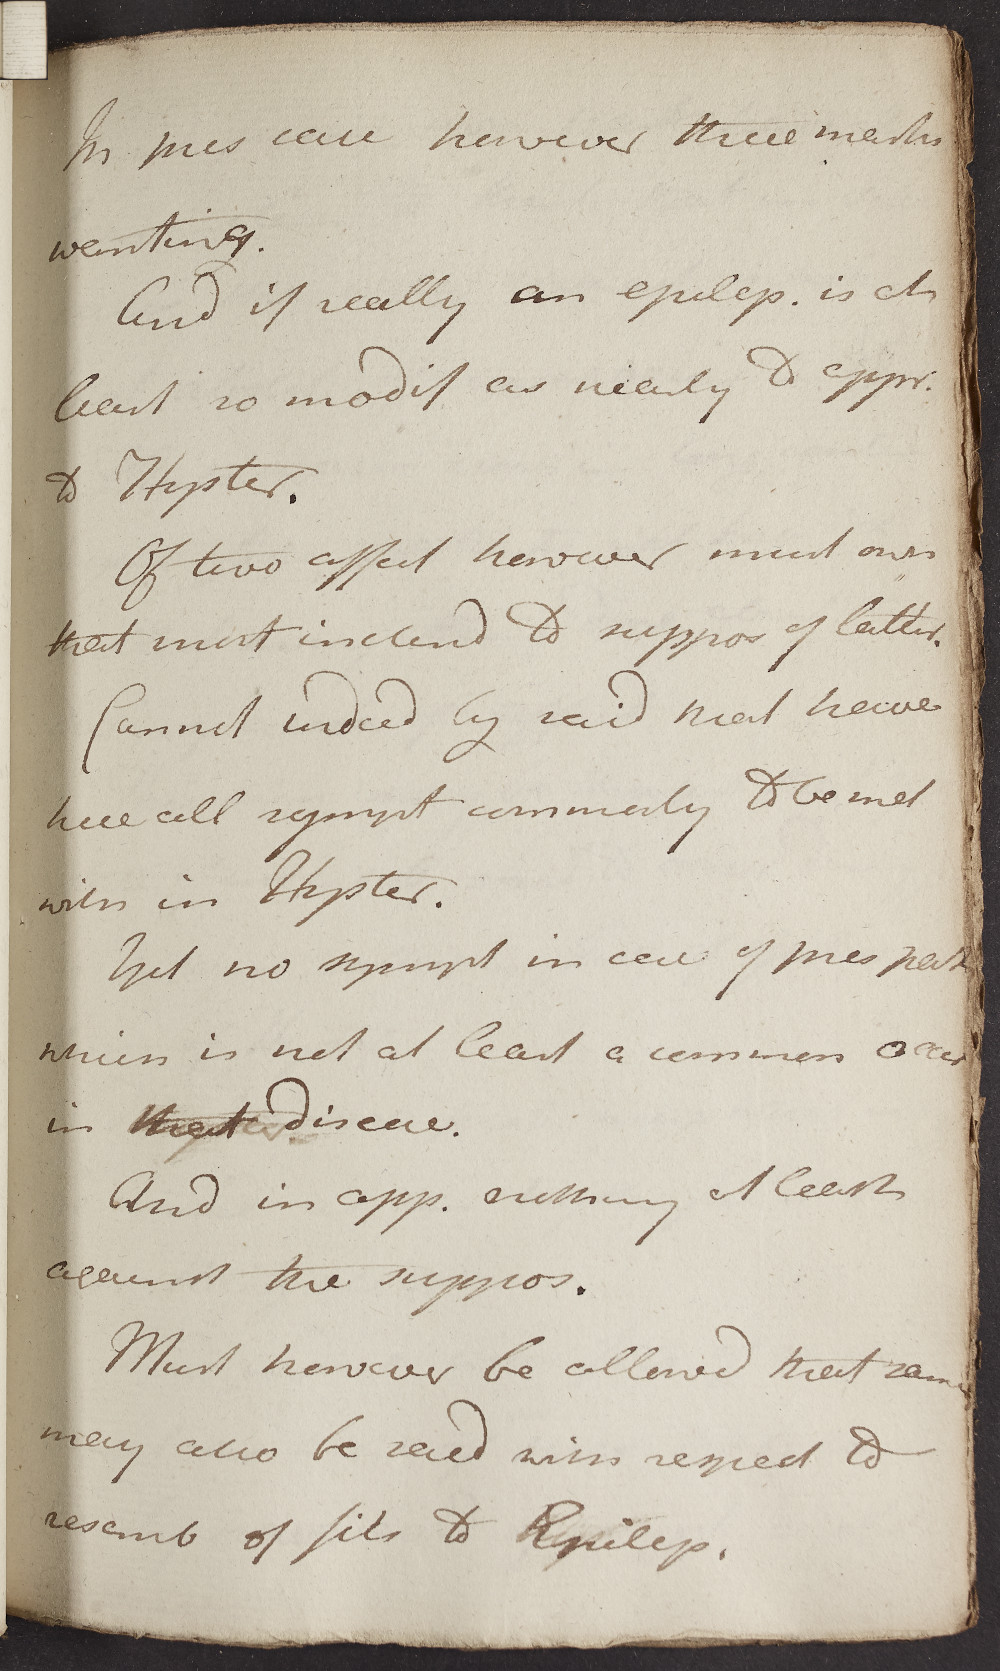 In pres case however these marks
wanting.
And if really an epilep. is at
least so modif as nearly to appr.
to Hyster.
Of two affect however must own
that most inclend to suppos of latter.
Cannot indeed by said that have
here all sympt commonly to be met
with in Hyster.
Yet no sympt in case of pres patt
which is not at least a common occur
in that disease.
And in app. nothing at least
against the suppos.
Must however be allowed that same
may also be said with respect to
resemb of fits to Epilep.